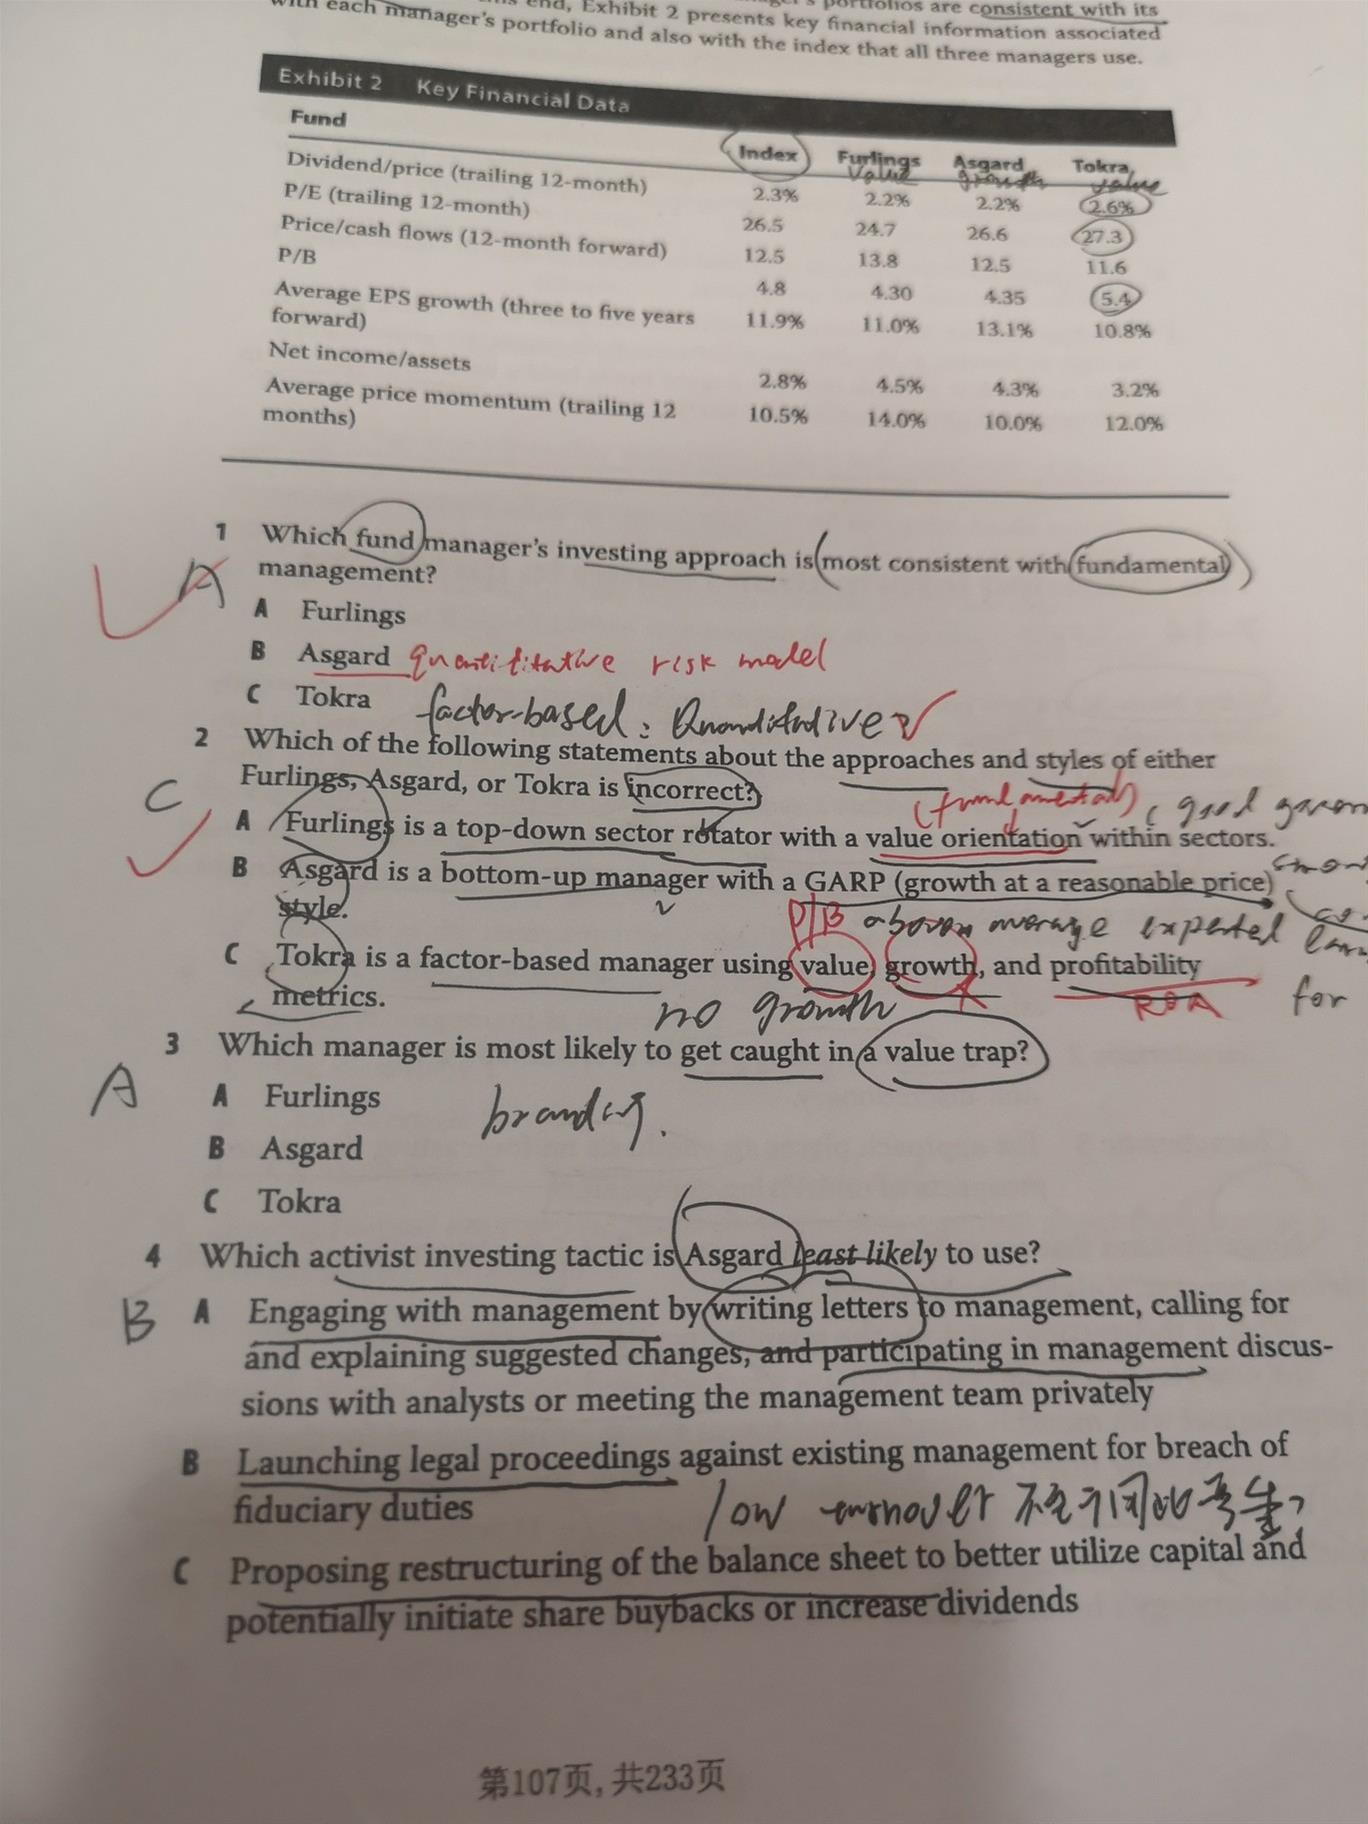 end, Exhibit 2 presents key financial information associated
portfolios are consistent with its
with each manager's portfolio and also with the index that all three managers use.
Exhibit 2 Key Financial Data
Fund Index Furlings Asgard Tokra
value growth value
Dividend/price (trailing 12-month) 2.3% 2.2% 2.2% 2.6%
P/E (trailing 12-month) 26.5 24.7 26.6 27.3
Price/cash flows (12-month forward) 12.5 13.8 12.5 11.6
P/B 4.8 4.30 4.35 5.4
Average EPS growth (three to five years 11.9% 11.0% 13.1% 10.8%
forward)
Net income/assets 2.8% 4.5% 4.3% 3.2%
Average price momentum (trailing 12 10.5% 14.0% 10.0% 12.0%
months)
1 Which fund manager's investing approach is most consistent with fundamental
management?
A
A Furlings
B Asgard quantitative risk model
C Tokra factor-based: Quantitative
2 Which of the following statements about the approaches and styles of either
Furlings, Asgard, or Tokra is incorrect?
C
(fundamental) good
A Furlings is a top-down sector rotator with a value orientation within sectors.
B Asgard is a bottom-up manager with a GARP (growth at a reasonable price)
style.
P/B above average expected
C Tokra is a factor-based manager using value, growth, and profitability
metrics.
no growth ROA for
3 Which manager is most likely to get caught in a value trap?
A
A Furlings
branding.
B Asgard
C Tokra
4 Which activist investing tactic is Asgard least likely to use?
B
A Engaging with management by writing letters to management, calling for
and explaining suggested changes, and participating in management discus-
sions with analysts or meeting the management team privately
B Launching legal proceedings against existing management for breach of
fiduciary duties
low turnover
C Proposing restructuring of the balance sheet to better utilize capital and
potentially initiate share buybacks or increase dividends
第107页, 共233页